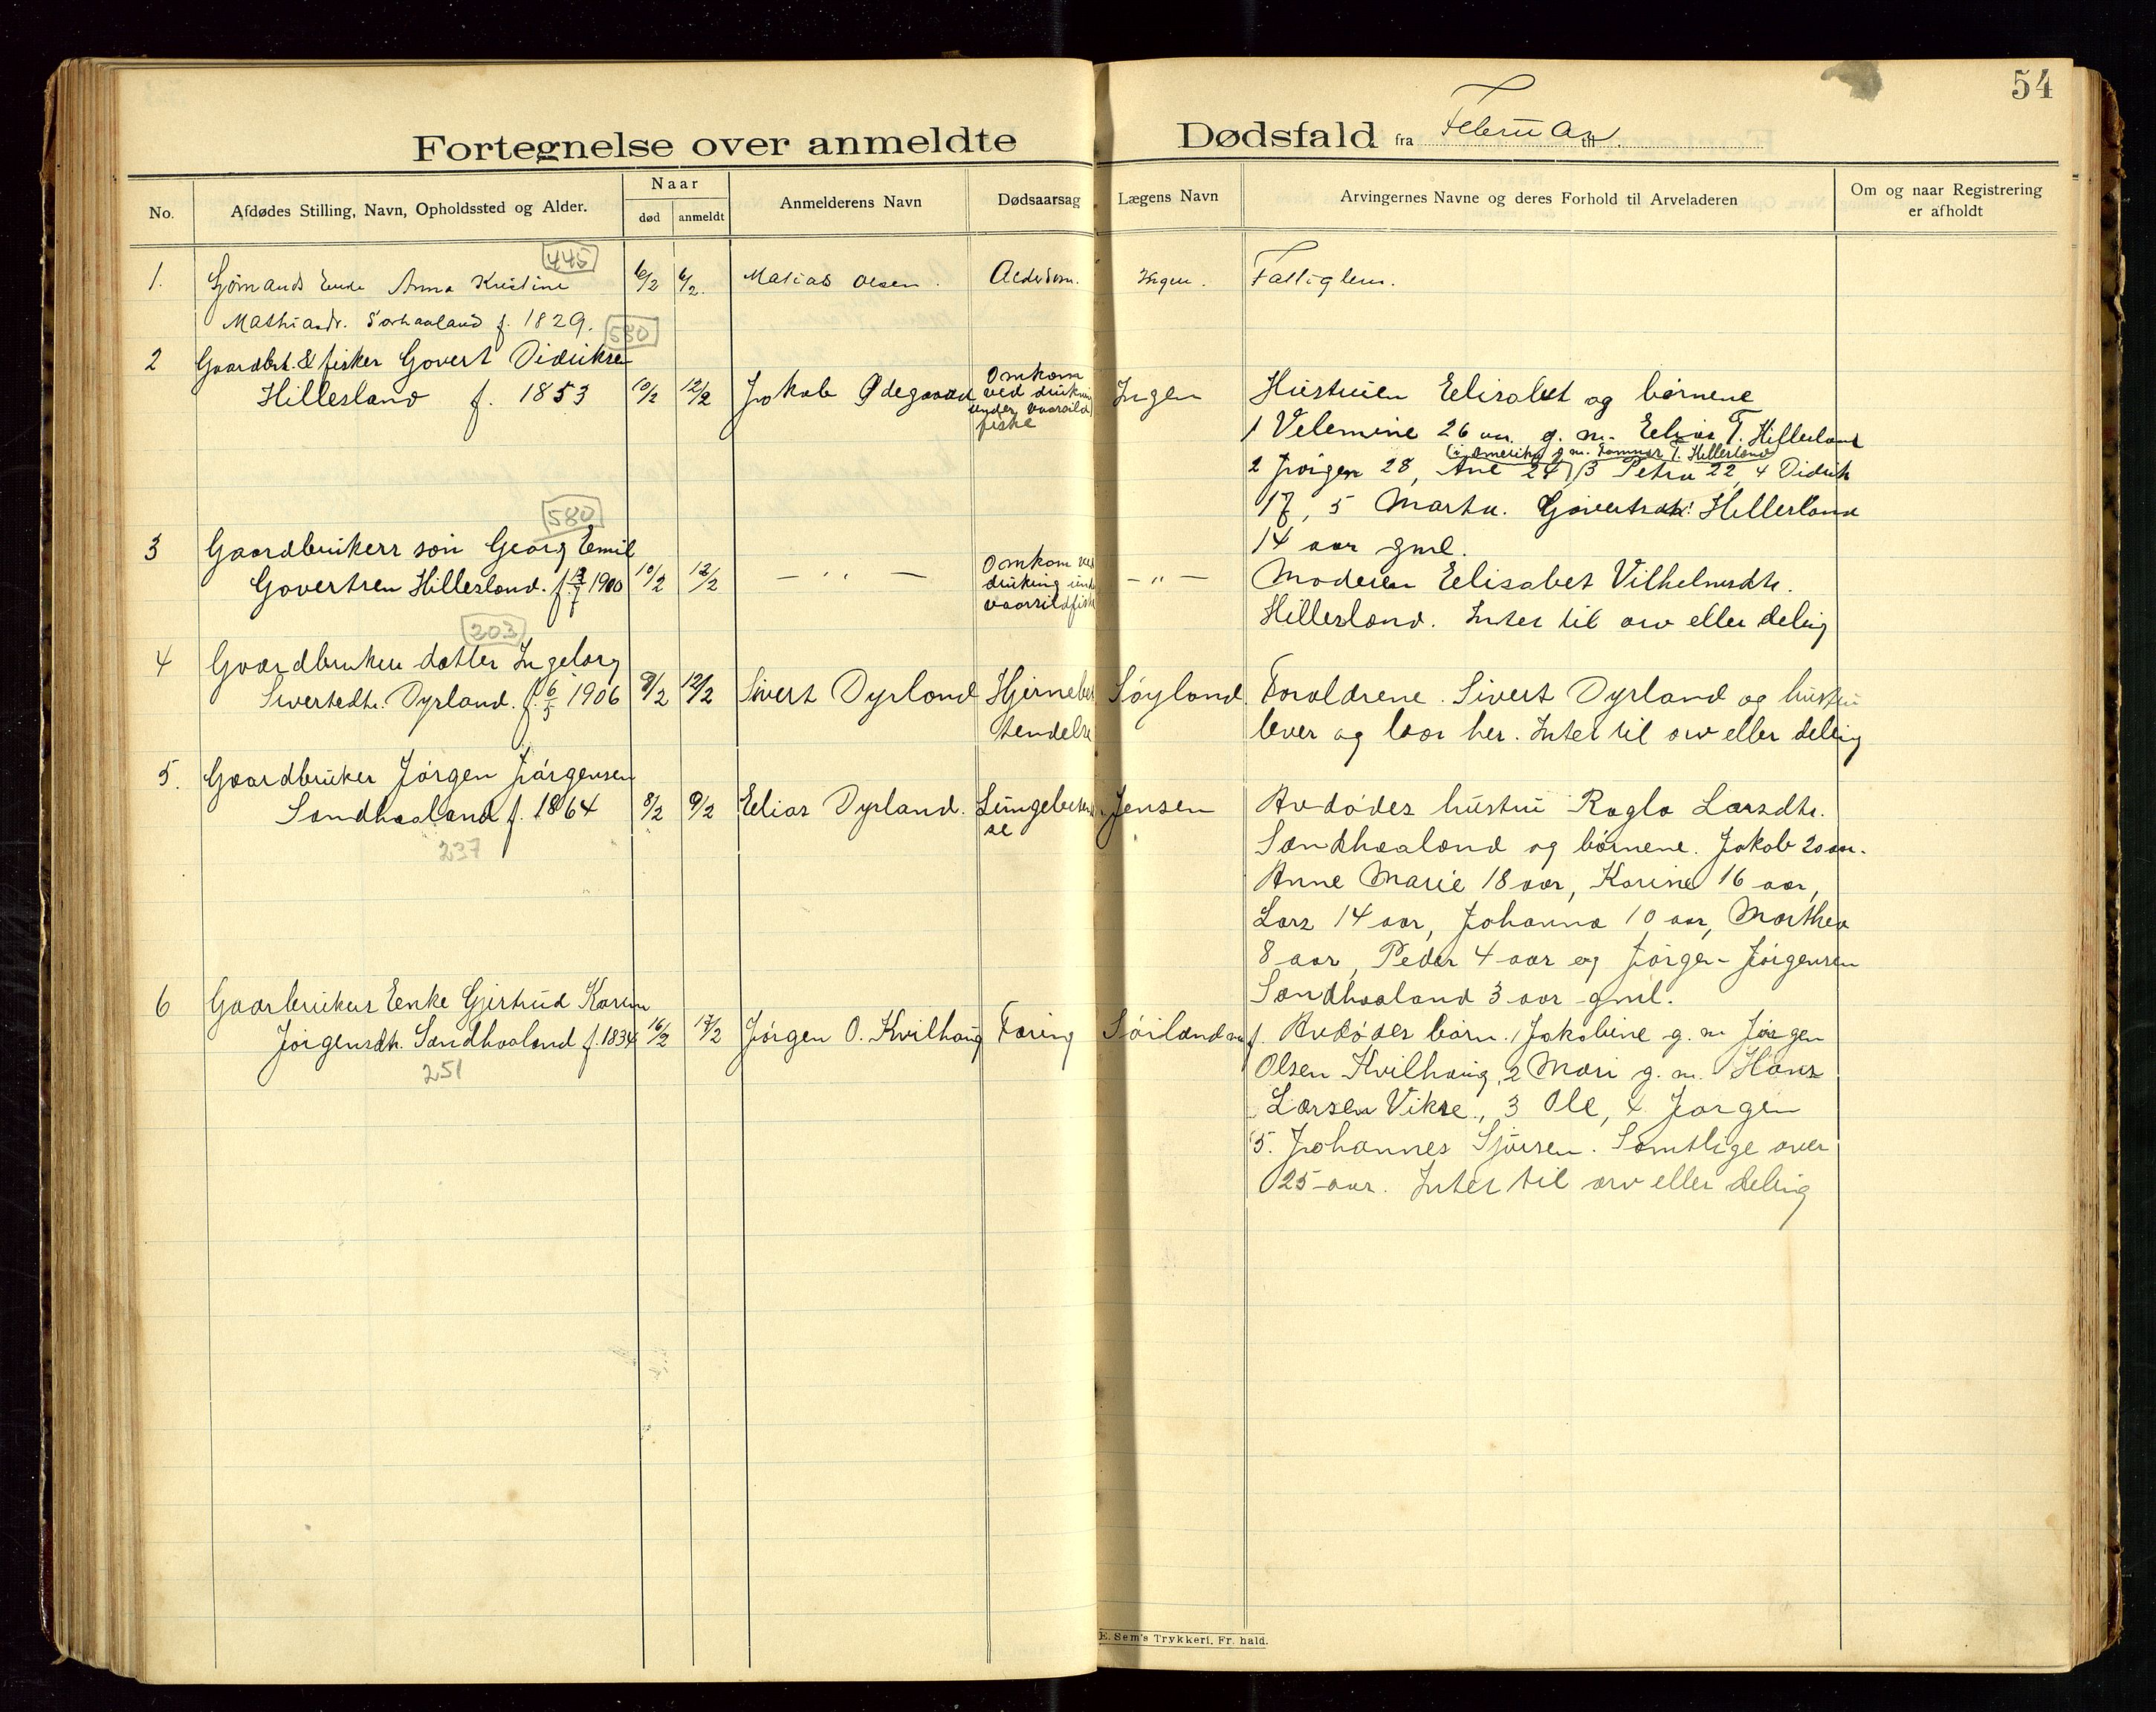 54
Fortegnelse over anmeldte Dødsfald fra Februar til
No.
Afdødes Stilling, Navn, Opholdssted og Alder.
Naar
død
anmeldt
Anmelderens Navn
Dødsaarsag
Lægens Navn
Arvingernes Navne og deres Forhold til Arveladeren
Om og naar Registrering
er afholdt
445
1. Sjømands Enke Anna Kristine 6/2 6/2. Matias Olsen. Alderdom. Ingen. Fattiglem.
Mathiasdr. Sørhaaland f. 1829.
580
2 Gaardbr. & fisker Govert Didriksen
Hillesland f. 1853 10/2 12/2 Jakob Ødegaard
Omkom
ved drukning
under vaarsild
fiske
Ingen
Hustruen Eelisabet og børnene
1 Velemine 26 aar g. m. Eelias T. Hillesland
(i Amerika g m. Tommas T. Hillesland)
2 Jørgen 28, Ane 24, 3 Petra 22, 4 Didrik
17, 5 Marta. Govertsdtr. Hillesland
14 aar gml.
580
3 Gaardbrukers søn Georg Emil
Govertsen Hillesland. f. 1900 10/2 12/2 — " —
Omkom ved
drukning under
vaarsildfiske
— " —
Moderen Eelisabet Vilhelmsdtr.
Hillesland. Intet til arv eller deling
203
4 Gaardbrukers datter Ingeborg
Sivertsdtr. Dyrland. f. 6/5 1906 9/2 12/2 Sivert Dyrland Hjernebe
tendelse
Søyland
Foraldrene. Sivert Dyrland og hustru
lever og boor her. Intet til arv eller deling
5. Gaardbruker Jørgen Jørgensen
Sandhaaland f. 1864 8/2 9/2 Eelias Dyrland. Lungebetend
se
Jensen
237
Avdødes hustru Ragla Larsdtr.
Sandhaaland og børnene. Jakob 20 aar.
Anne Marie 18 aar, Karine 16 aar,
Lars 14 aar, Johanna 10 aar, Marthea
8 aar, Peder 4 aar og Jørgen Jørgensen
Sandhaaland 3 aar gml.
6 Gaarbrukers Eenke Gjertrud Karine
Jørgensdtr. Sandhaaland f. 1834 16/2 17/2 Jørgen O. Kvilhaug Tæring Søiland
251
Avdødes børn. 1 Jakobine g. m Jørgen
Olsen Kvilhaug, 2 Mari g. m. Hans
Larsen Vikre., 3 Ole, 4 Jørgen
5. Johannes Sjursen. Samtlige over
25 aar. Intet til arv eller deling
E. Sem's Trykkeri, Fr. hald.